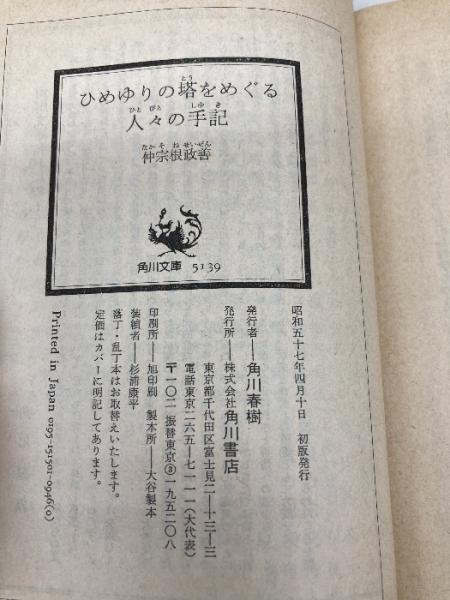 ひめゆりの塔をめぐる
とう
人々の手記
ひとびと しゅき
仲宗根政善
なかそねせいぜん
角川文庫 5139
昭和五十七年四月十日 初版発行
発行者――角川春樹
発行所――株式会社角川書店
東京都千代田区富士見二―十三―三
電話東京二六五―七一一一(大代表)
〒一〇二 振替東京③一九五二〇八
印刷所――旭印刷 製本所――大谷製本
装幀者――杉浦康平
落丁・乱丁本はお取替えいたします。
定価はカバーに明記してあります。
Printed in Japan 0195-151501-0946(0)